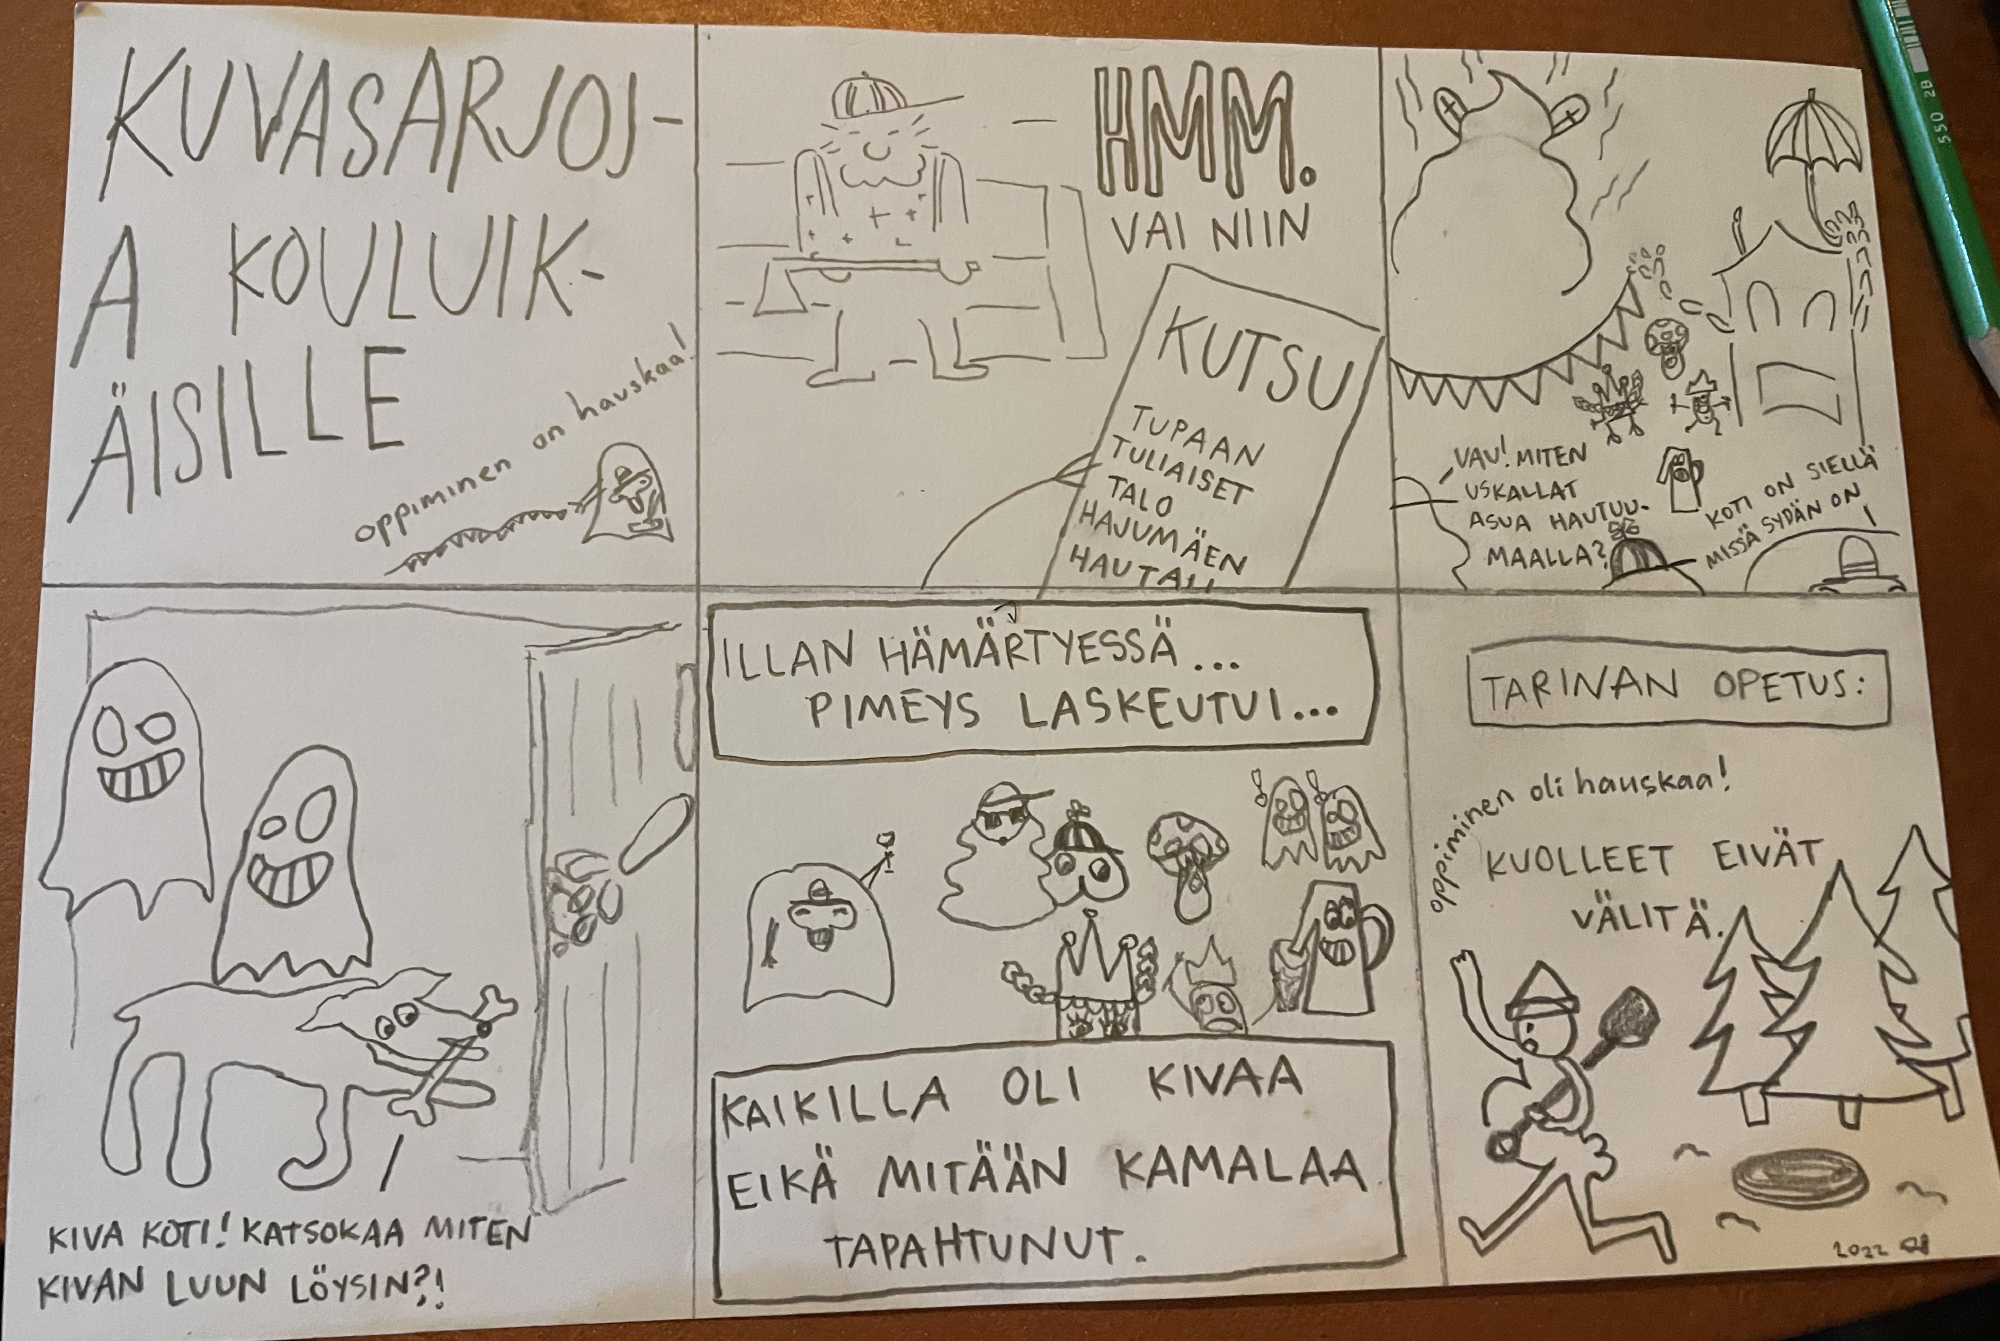 KUVASARJOJ-
A KOULUIK-
ÄISILLE
oppiminen on hauskaa!
HMM.
VAI NIIN
KUTSU
TUPAAN
TULIAISET
TALO
HAJUMÄEN
HAUTAUU
VAU! MITEN
USKALLAT
ASUA HAUTUU-
MAALLA?
KOTI ON SIELLÄ
MISSÄ SYDÄN ON
KIVA KOTI! KATSOKAA MITEN
KIVAN LUUN LÖYSIN?!
ILLAN HÄMÄRTYESSÄ...
PIMEYS LASKEUTUI...
KAIKILLA OLI KIVAA
EIKÄ MITÄÄN KAMALAA
TAPAHTUNUT.
TARINAN OPETUS:
oppiminen oli hauskaa!
KUOLLEET EIVÄT
VÄLITÄ.
2022
550 2B